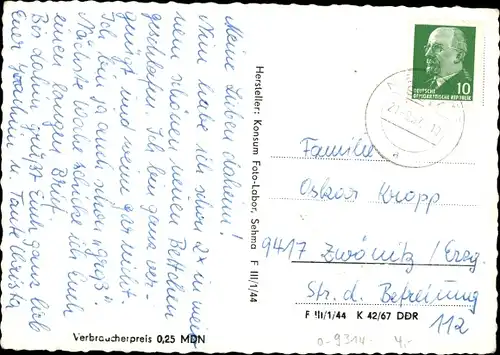 Meine Lieben daheim!
Nun habe ich schon 2x in mei-
nem schönen neuen Bettchen
geschlafen. Ich bin ganz ver-
gnügt und weine gar nicht.
Ich bin ja auch schon "groß".
Nächste Woche schicke ich Euch
einen langen Brief.
Bis dahin grüßt Euch ganz lieb
Euer und Tante
Verbraucherpreis 0,25 MDN
Hersteller: Konsum Foto-Labor, Sehma F III/1/44
DEUTSCHE
DEMOKRATISCHE REPUBLIK
10
Familie
Oskar Kropp
9417 Zwönitz/Erzg.
Str. d. Befreiung
112
F III/1/44 K 42/67 DDR
0-9314
4,-